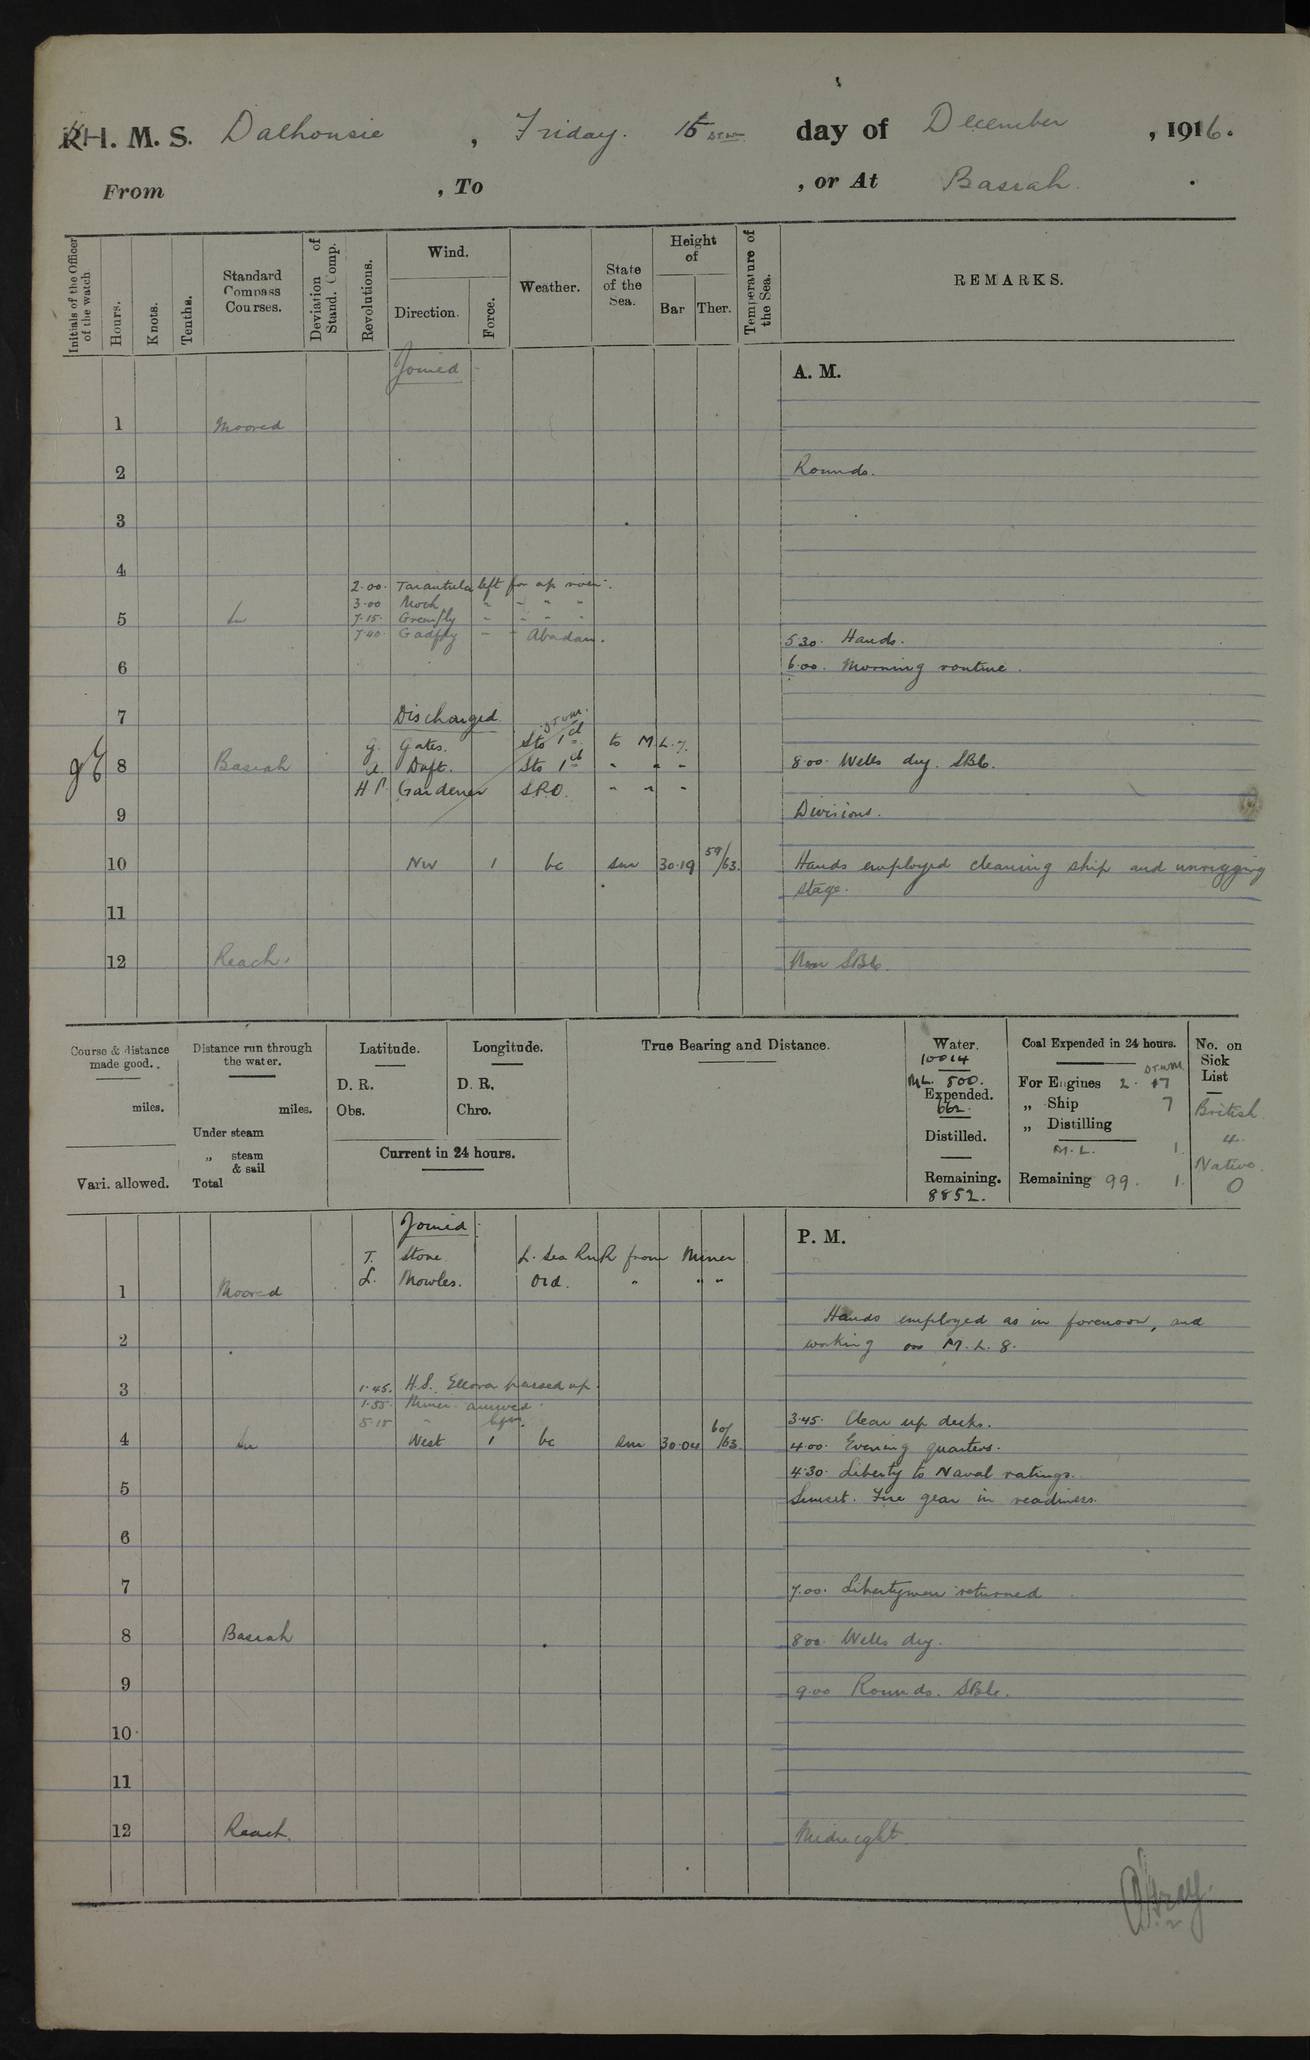 H. M. S. Dalhousie , Friday. 15 day of December , 1916.
From , To , or At Basrah.
Initials of the Officer of the watch
Hours.
Knots.
Tenths.
Standard Compass Courses.
Deviation of Stand. Comp.
Revolutions.
Wind.
Direction.
Force.
Weather.
State of the Sea.
Height of
Bar Ther.
Temperature of the Sea.
REMARKS.
Joined
A. M.
1 Moored
2 Rounds.
3
4
2.00. Tarantula left for up river.
3.00 Moth " - " "
5 In 7.15. Greenfly " - " "
7.40. Gadfly - - Abadan.
5.30. Hands.
6 6.00. Morning routine.
7 Discharged
G. Gates. Sto 1st to M.L.7.
8 Basrah A. Daft. Sto 1st " " " 8.00. Wells dry. SBb.
H P Gardener S.P.O. " " "
9 Divisions.
10 NW 1 bc sm 30.19 59/63. Hands employed cleaning ship and unrigging
stage.
11
12 Reach. Noon SBb.
Course & distance made good.
miles.
Vari. allowed.
Distance run through the water.
miles.
Under steam
" steam & sail
Total
Latitude.
D. R.
Obs.
Longitude.
D. R.
Chro.
Current in 24 hours.
True Bearing and Distance.
Water.
10014
M.L. 500.
Expended.
662.
Distilled.
Remaining.
8852.
Coal Expended in 24 hours.
For Engines 2. 17
" Ship 7
" Distilling
M.L. 1.
Remaining 99. 1.
No. on Sick List
British
4.
Native.
0
Joined
P. M.
T. Stone L. Sea RNR from Miner
L. Mowles. Ord. " " "
1 Moored
Hands employed as in forenoon, and
2 working on M.L. 8.
3 1.45. H.S. Ellora passed up.
1.55. Miner arrived.
5.15 " left. 3.45. Clear up decks.
4 In West 1 bc sm 30.04 60/63. 4.00. Evening quarters.
4.30. Liberty to Naval ratings.
5 Sunset. Fire gear in readiness.
6
7 7.00. Libertymen returned
8 Basrah 8.00. Wells dry.
9 9.00 Rounds. SBb.
10
11
12 Reach. Midnight